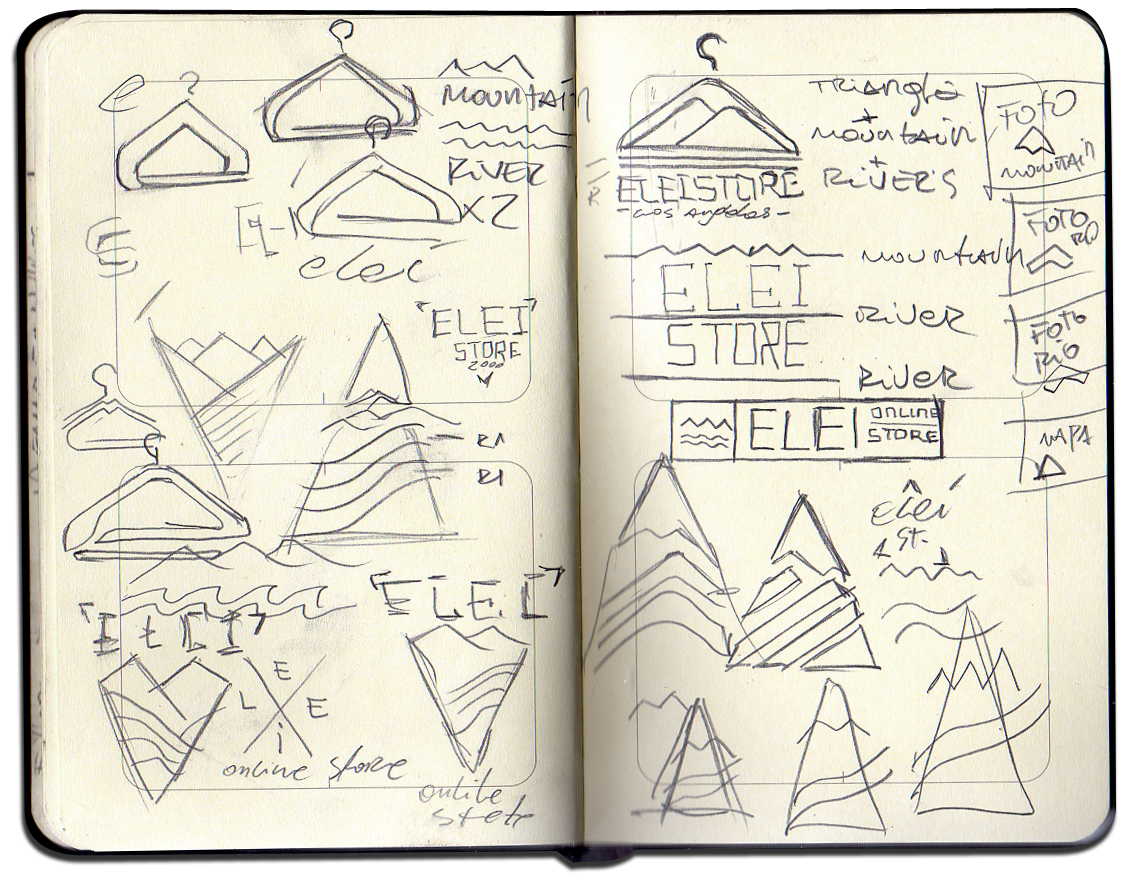 e
MOUNTAIN
RIVER
X2
elei
"ELEI"
STORE
2000
R1
R1
"ELEI"
"ELEI"
E
L E
i
online store
online
store
TRiANGLE
+
MOUNTAIN
+
RiVERS
ELEISTORE
-Los Angeles-
MOUNTAIN
ELEI
RiVER
STORE
RiVER
ELEI
ONLINE
STORE
elei
st.
FOTO
MOUNTAiN
FOTO
RiO
FOTO
RiO
MAPA